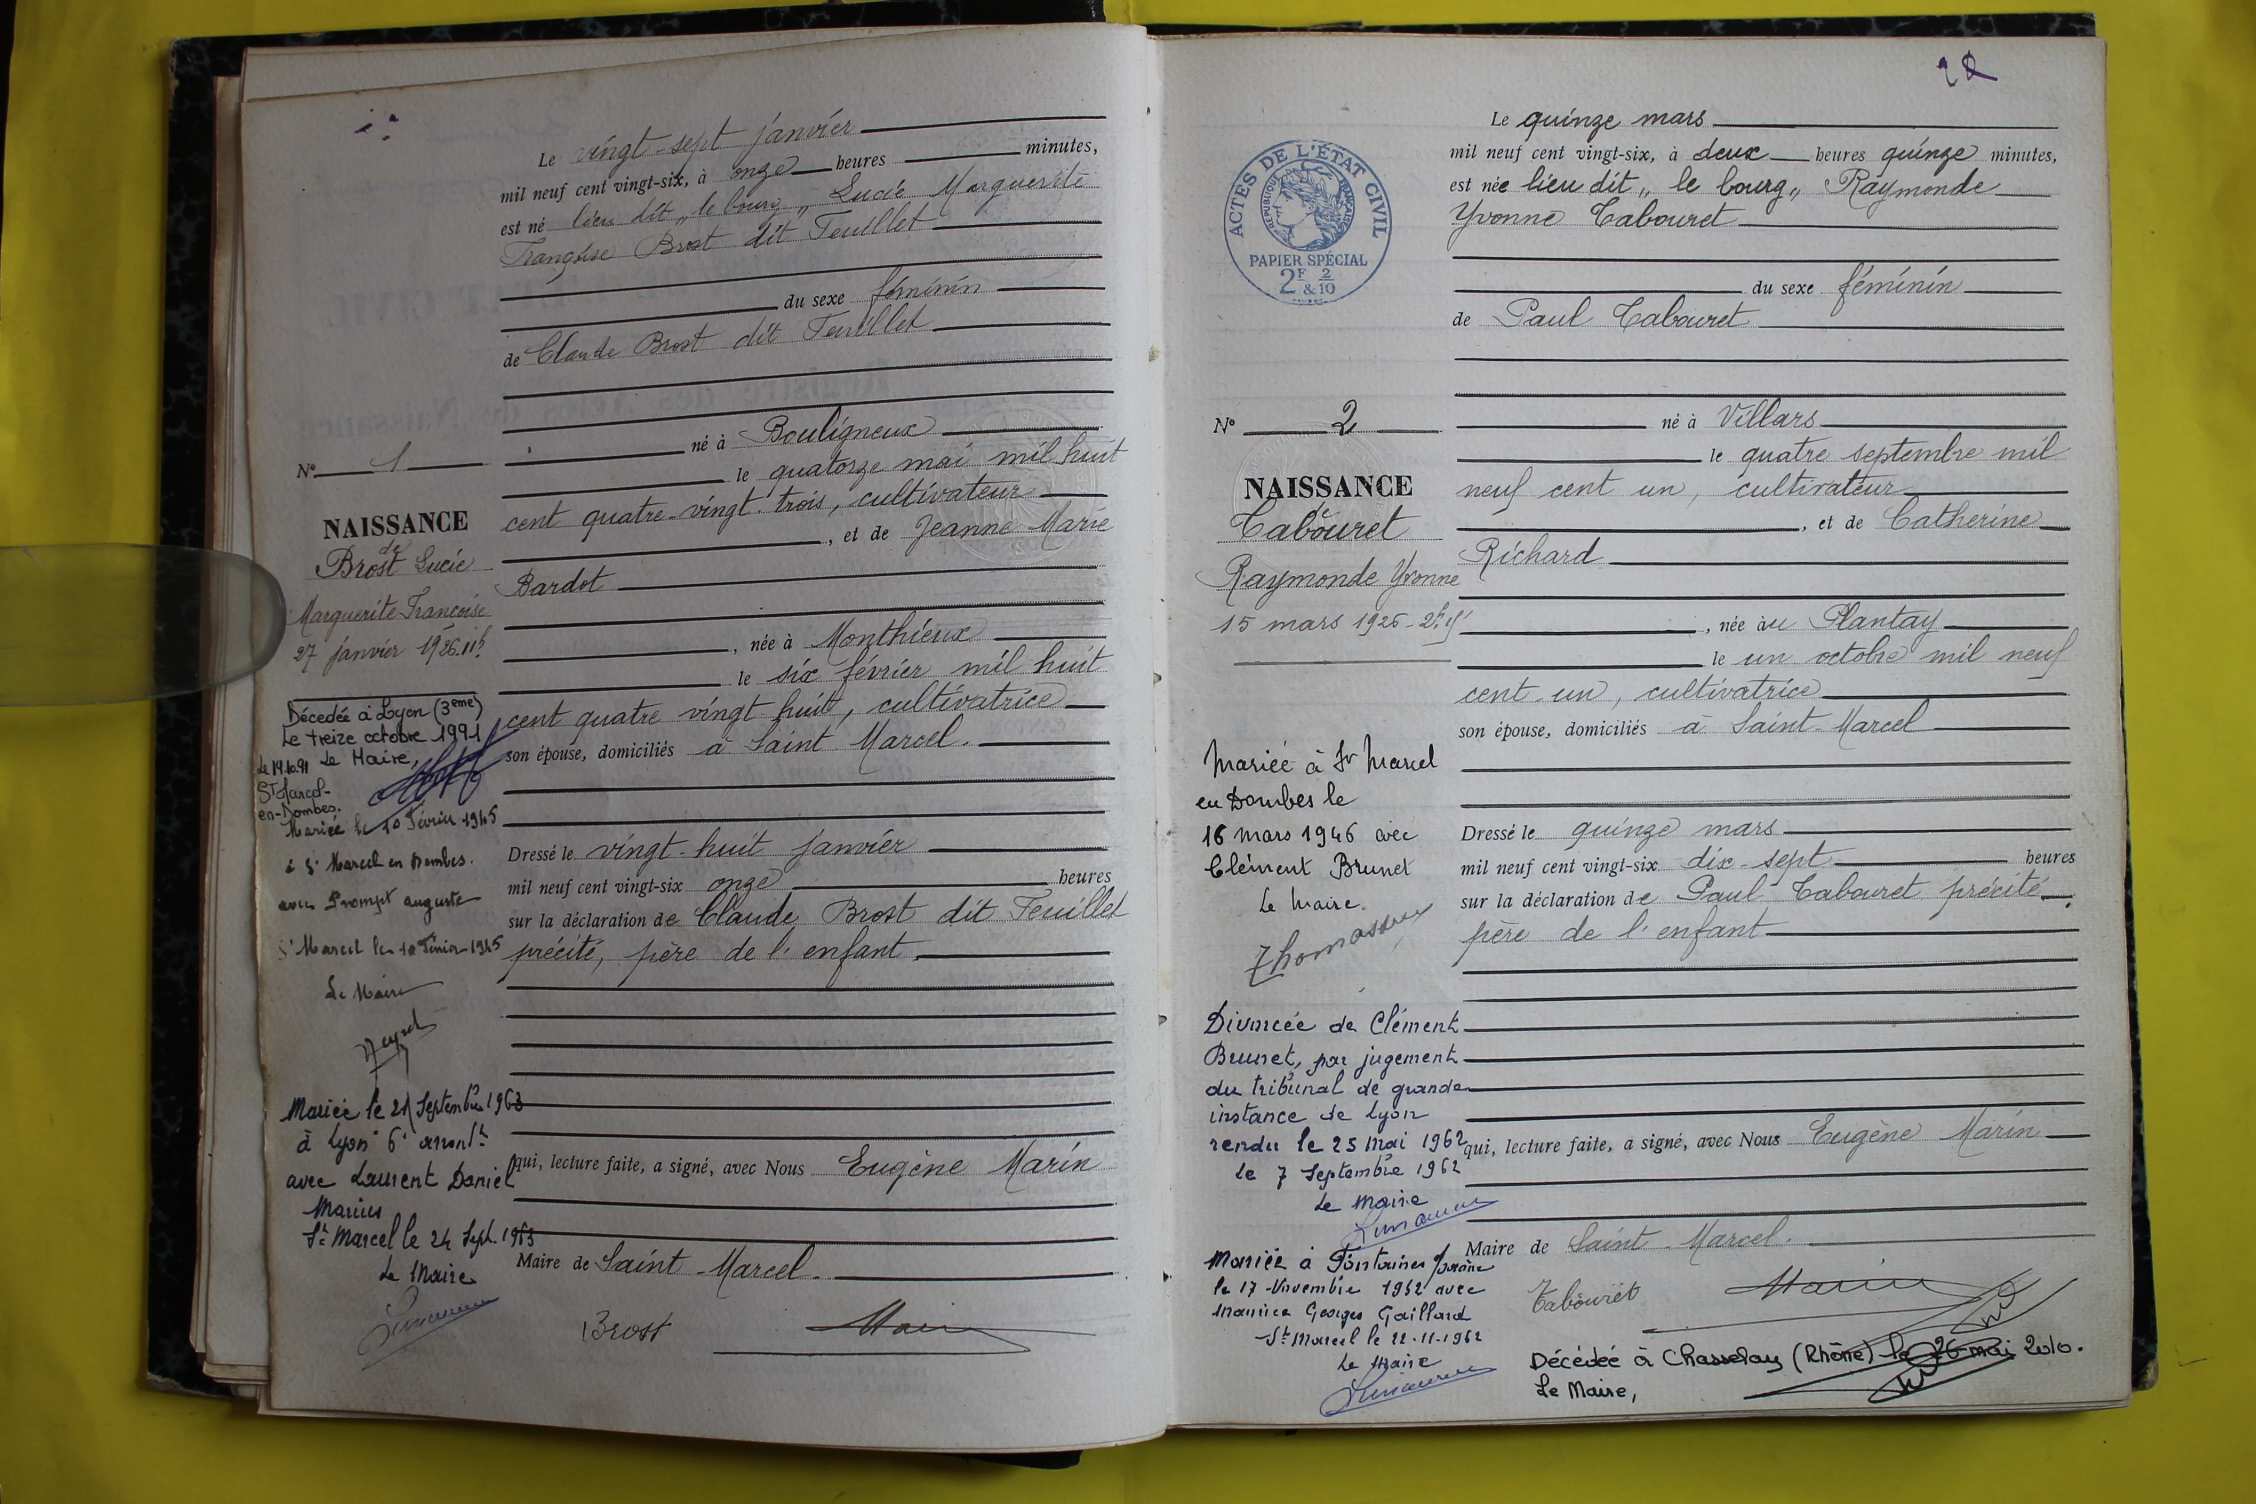 Le vingt-sept janvier
mil neuf cent vingt-six, à onze heures minutes,
est né lieu dit „ le bourg „ Lucie Marguerite
Françoise Brost dit Feuillet
du sexe féminin
de Claude Brost dit Feuillet
né à Bouligneux
le quatorze mai mil huit
cent quatre-vingt-trois, cultivateur
, et de Jeanne Marie
Bardot
, née à Monthieux
le six février mil huit
cent quatre vingt huit, cultivatrice
son épouse, domiciliés à Saint Marcel.
Dressé le vingt-huit janvier
mil neuf cent vingt-six onze heures
sur la déclaration de Claude Brost dit Feuillet
précité, père de l'enfant
qui, lecture faite, a signé, avec Nous Eugène Marin
Maire de Saint-Marcel.
Brost Marin
N° 1
NAISSANCE
de
Brost Lucie
Marguerite Françoise
27 janvier 1926. 11h
Décedée à Lyon (3eme)
Le treize octobre 1991
Le 19.10.91 Le Maire,
St Marcel-
en-Dombes.
Mariée le 10 Février 1945
à St Marcel en Dombes.
avec Prompt auguste
St Marcel le 10 Février 1945
Le Maire
Mariée le 21 Septembre 1963
à Lyon 6e arront
avec Laurent Daniel
Marius
St Marcel le 24 Sept. 1963
Le Maire
2
Le quinze mars
mil neuf cent vingt-six, à deux heures quinze minutes,
est née lieu dit „ le bourg „ Raymonde
Yvonne Tabouret
du sexe féminin
de Paul Tabouret
né à Villars
le quatre septembre mil
neuf cent un, cultivateur
, et de Catherine
Richard
, née au Plantay
le un octobre mil neuf
cent-un, cultivatrice
son épouse, domiciliés à Saint-Marcel
Dressé le quinze mars
mil neuf cent vingt-six dix-sept heures
sur la déclaration de Paul Tabouret précité,
père de l'enfant
qui, lecture faite, a signé, avec Nous Eugène Marin
Maire de Saint-Marcel.
Tabouret Marin
Décédée à Chasselay (Rhône) le 26 mai 2010.
Le Maire,
ACTES DE L'ÉTAT CIVIL
RÉPUBLIQUE FRANÇAISE
PAPIER SPÉCIAL
2F & 2/10
N° 2
NAISSANCE
de
Tabouret
Raymonde Yvonne
15 mars 1926 - 2h 15
Mariée à St Marcel
en Dombes le
16 mars 1946 avec
Clément Brunet
Le Maire.
Thomasson
Divorcée de Clément
Brunet, par jugement
du tribunal de grande
instance de Lyon
rendu le 25 Mai 1962
le 7 Septembre 1962
Le Maire
Mariée à Fontaines s/ Saône
le 17 Novembre 1962 avec
Maurice Georges Gaillard
St Marcel le 22-11-1962
Le Maire